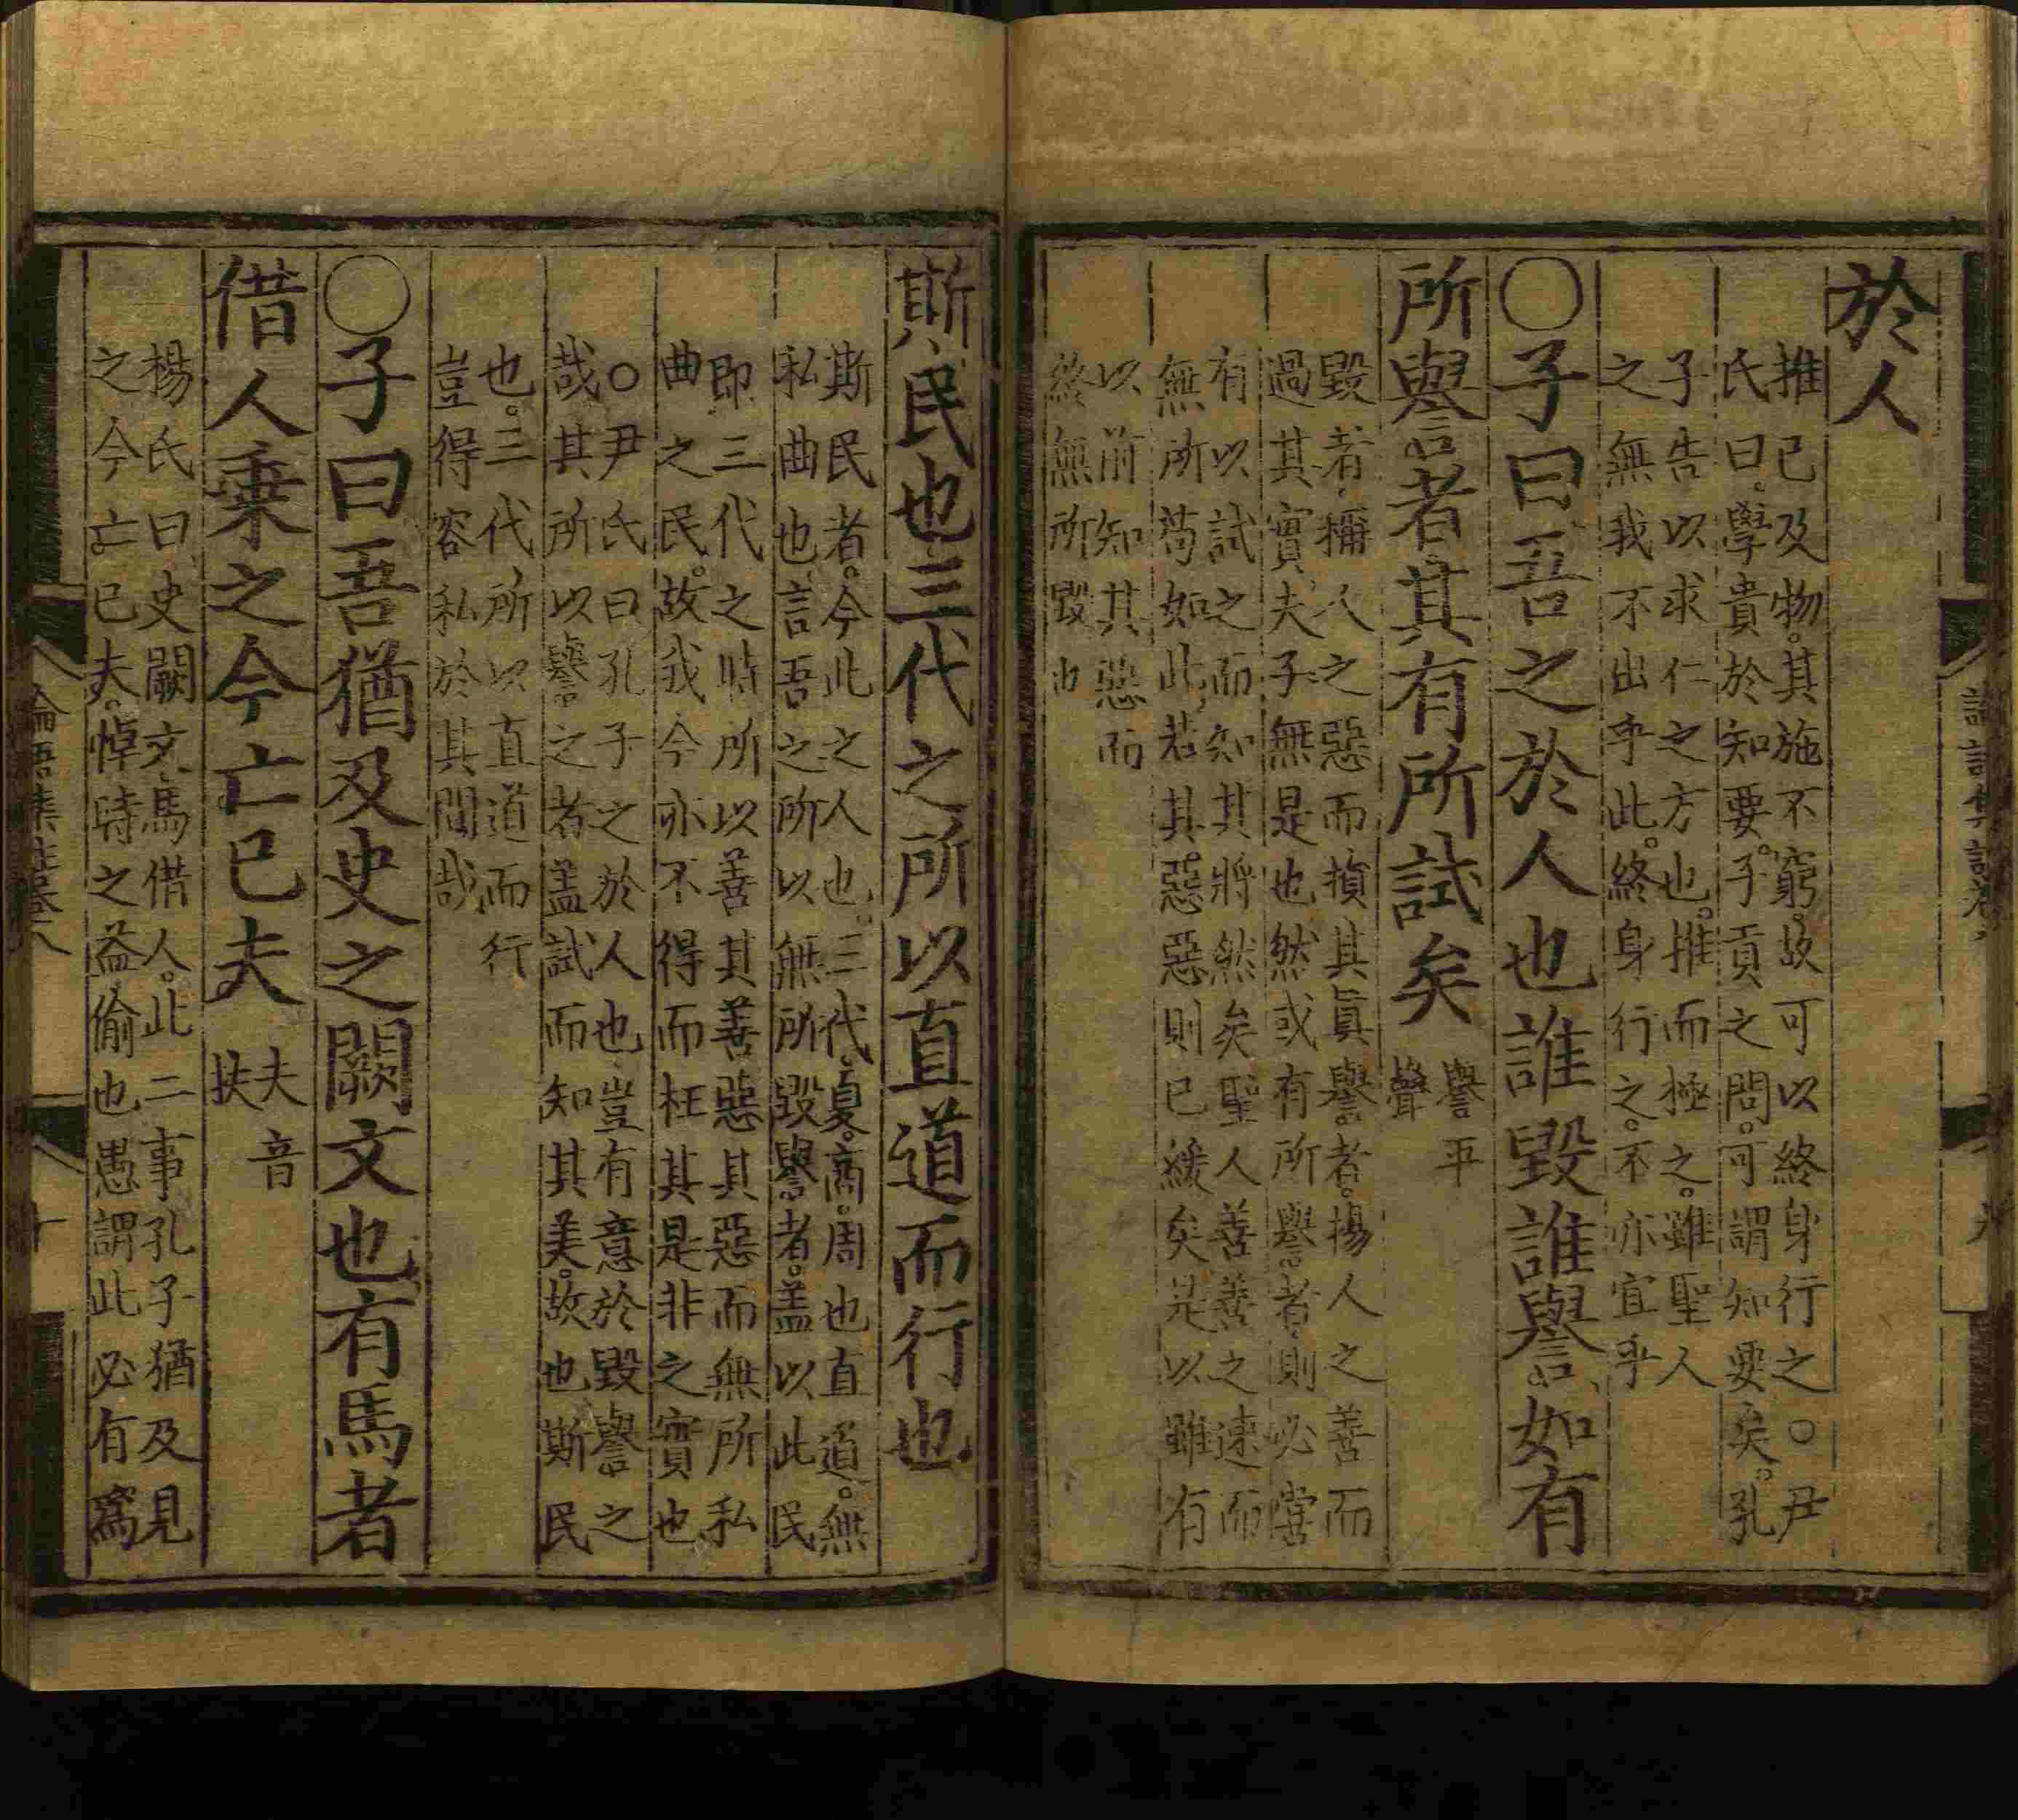 於人
推己及物。其施不窮。故可以終身行之○尹
氏曰。學貴於知要。子貢之問。可謂知要矣。孔
子告以求仁之方也。推而極之。雖聖人
之無我不出乎此。終身行之。不亦宜乎
○子曰吾之於人也誰毀誰譽如有
所譽者其有所試矣
譽平
聲
毀者、稱人之惡而損其眞。譽者。揚人之善而
過其實、夫子無是也然或有所譽者、則必嘗
有以試之而知其將然矣聖人善善之速而
無所苟如此、若其惡惡則已緩矣是以雖有
以前知其惡而
終無所毀也
斯民也三代之所以直道而行也
斯民者。今此之人也、三代、夏。商。周也直道。無
私曲也、言吾之所以無所毀譽者。盖以此民
即三代之時所以善其善惡其惡而無所私
曲之民。故我今亦不得而枉其是非之實也
○尹氏曰孔子之於人也豈有意於毀譽之
哉其所以譽之者盖試而知其美。故也斯民
也。三代所以直道而行
豈得容私於其間哉
○子曰吾猶及史之闕文也有馬者
借人乗之今亡已夫
夫音
扶
楊氏曰史闕文、馬借人。此二事孔子猶及見
之今亡已夫。悼時之益偷也愚謂此必有爲
論語集註卷八
十